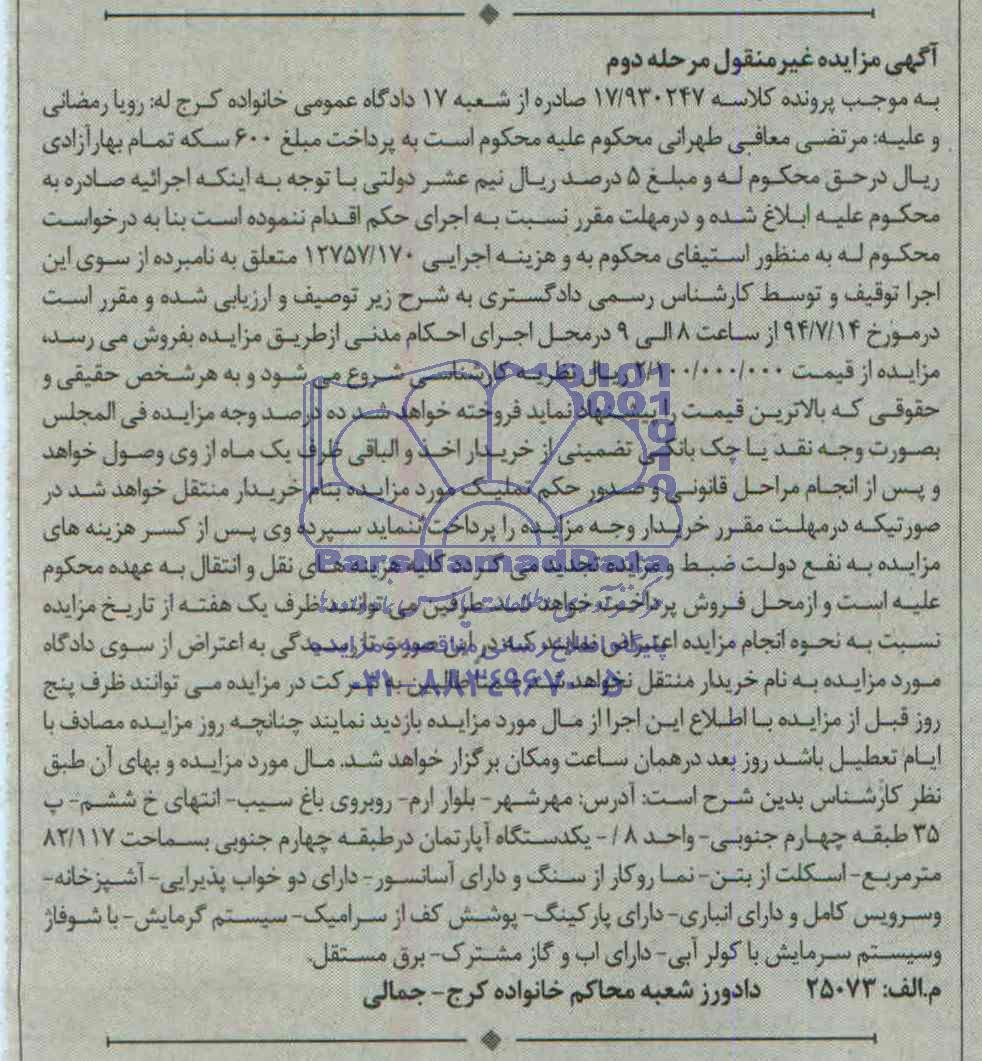 آگهی مزایده غیرمنقول مرحله دوم
به موجب پرونده کلاسه ۱۷/۹۳۰۲۴۷ صادره از شعبه ۱۷ دادگاه عمومی خانواده کرج له: رویا رمضانی
و علیه: مرتضی معافی طهرانی محکوم علیه محکوم است به پرداخت مبلغ ۶۰۰ سکه تمام بهارآزادی
ریال درحق محکوم له و مبلغ ۵ درصد ریال نیم عشر دولتی با توجه به اینکه اجرائیه صادره به
محکوم علیه ابلاغ شده و درمهلت مقرر نسبت به اجرای حکم اقدام ننموده است بنا به درخواست
محکوم له به منظور استیفای محکوم به و هزینه اجرایی ۱۲۷۵۷/۱۷۰ متعلق به نامبرده از سوی این
اجرا توقیف و توسط کارشناس رسمی دادگستری به شرح زیر توصیف و ارزیابی شده و مقرر است
درمورخ ۹۴/۷/۱۴ از ساعت ۸ الی ۹ درمحل اجرای احکام مدنی ازطریق مزایده بفروش می رسد،
مزایده از قیمت ۲/۱۰۰/۰۰۰/۰۰۰ ریال نظریه کارشناسی شروع می شود و به هرشخص حقیقی و
حقوقی که بالاترین قیمت را پیشنهاد نماید فروخته خواهد شد ده درصد وجه مزایده فی المجلس
بصورت وجه نقد یا چک بانکی تضمینی از خریدار اخذ و الباقی ظرف یک ماه از وی وصول خواهد
و پس از انجام مراحل قانونی و صدور حکم تملیک مورد مزایده بنام خریدار منتقل خواهد شد در
صورتیکه درمهلت مقرر خریدار وجه مزایده را پرداخت ننماید سپرده وی پس از کسر هزینه های
مزایده به نفع دولت ضبط و مزایده تجدید می گردد کلیه هزینه های نقل و انتقال به عهده محکوم
علیه است و ازمحل فروش پرداخت خواهد شد طرفین می توانند ظرف یک هفته از تاریخ مزایده
نسبت به نحوه انجام مزایده اعتراض نمایند که در این صورت تا رسیدگی به اعتراض از سوی دادگاه
مورد مزایده به نام خریدار منتقل نخواهد شد ضمنا طالبین به شرکت در مزایده می توانند ظرف پنج
روز قبل از مزایده با اطلاع این اجرا از مال مورد مزایده بازدید نمایند چنانچه روز مزایده مصادف با
ایام تعطیل باشد روز بعد درهمان ساعت ومکان برگزار خواهد شد. مال مورد مزایده و بهای آن طبق
نظر کارشناس بدین شرح است: آدرس: مهرشهر- بلوار ارم- روبروی باغ سیب- انتهای خ ششم- پ
۳۵ طبقه چهارم جنوبی- واحد ۸ /- یکدستگاه آپارتمان درطبقه چهارم جنوبی بسماحت ۸۲/۱۱۷
مترمربع- اسکلت از بتن- نما روکار از سنگ و دارای آسانسور- دارای دو خواب پذیرایی- آشپزخانه-
وسرویس کامل و دارای انباری- دارای پارکینگ- پوشش کف از سرامیک- سیستم گرمایش- با شوفاژ
وسیستم سرمایش با کولر آبی- دارای اب و گاز مشترک- برق مستقل.
م.الف: ۲۵۰۷۳ دادورز شعبه محاکم خانواده کرج- جمالی
ParsNamadData
۰۲۱-۸۸۳۴۹۶۷۰-۵